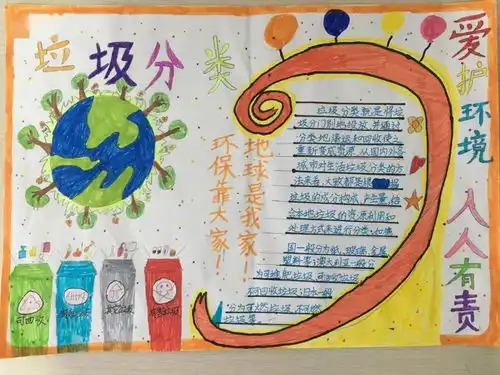 垃圾分类
爱护环境 人人有责
地球是我家！
环保靠大家！
垃圾分类就是将垃
圾分门别类地投放,并通过
分类地清运和回收使之
重新变成资源.从国内外各
城市对生活垃圾分类的方
法来看,大致都是根据
垃圾的成分构成、产生量,结
合本地垃圾的资源利用和
处理方式来进行分类.如德
国一般分为纸、玻璃、金属、
塑料等;澳大利亚一般分
为可堆肥垃圾,可回收垃圾
不可回收垃圾;日本一般
分为可燃垃圾,不可燃
垃圾等.
可回收
其它垃圾